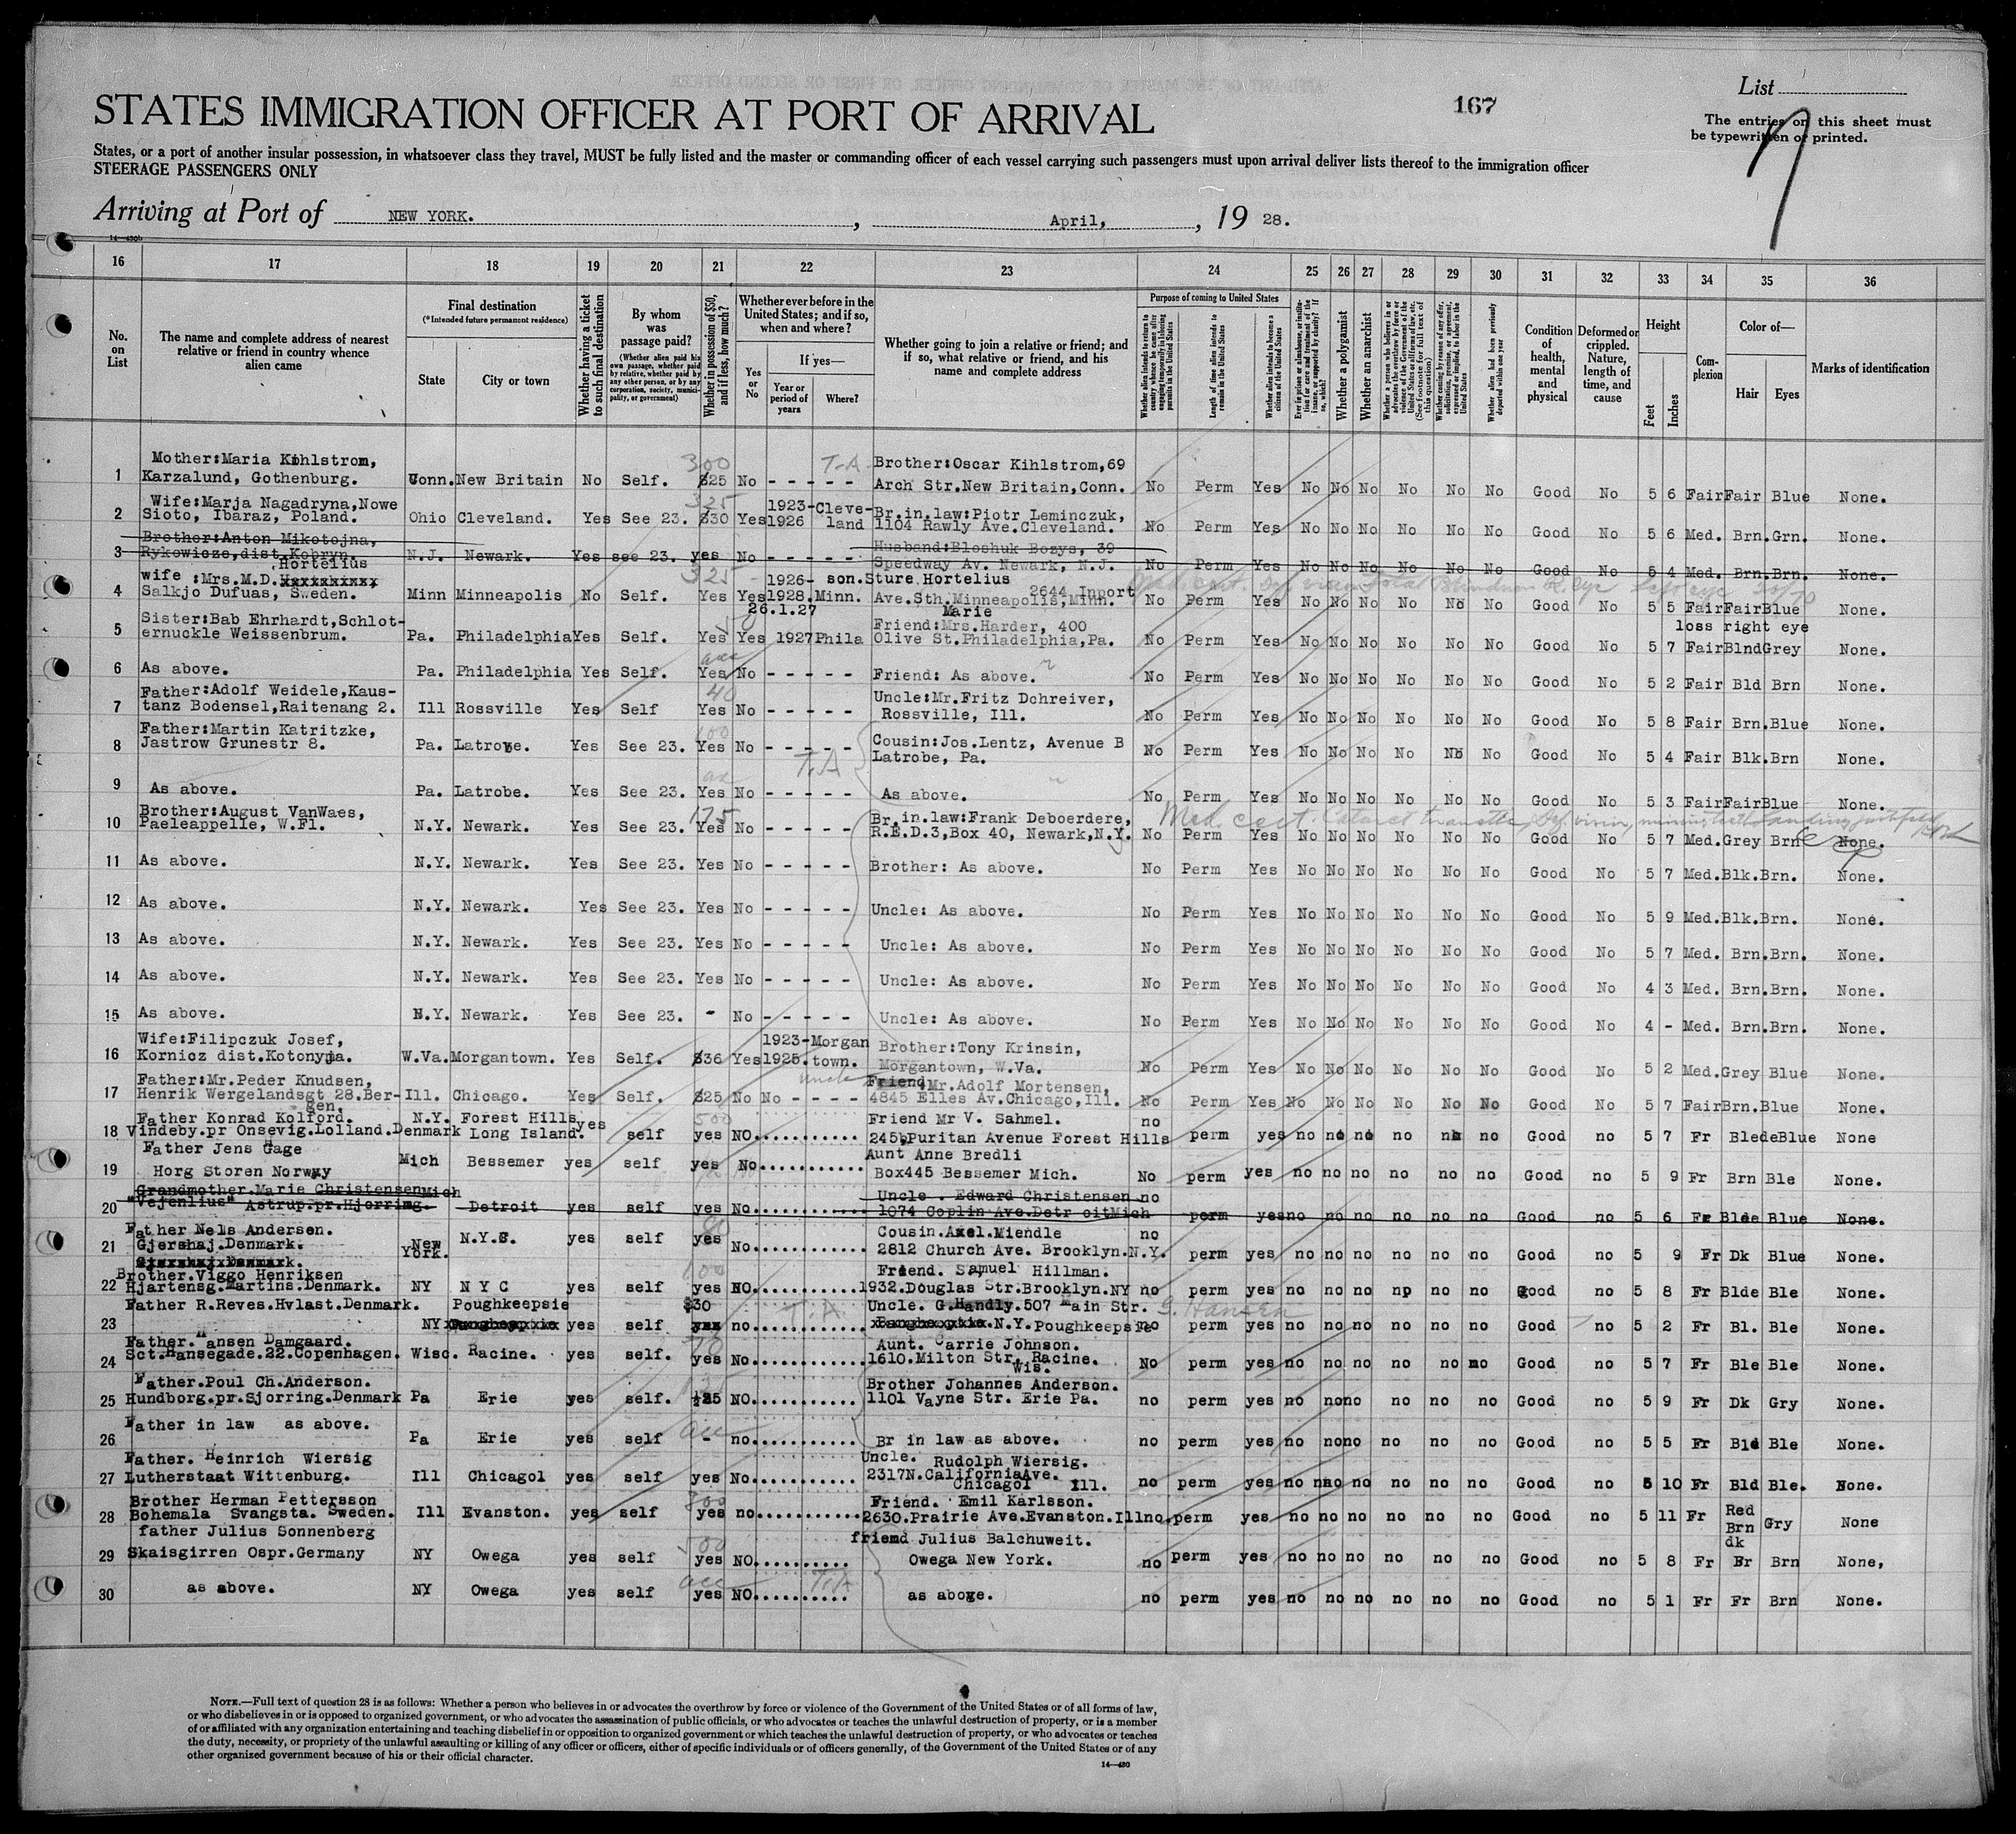 List
167
STATES IMMIGRATION OFFICER AT PORT OF ARRIVAL
The entries on this sheet must
be typewritten or printed.
7
States, or a port of another insular possession, in whatsoever class they travel, MUST be fully listed and the master or commanding officer of each vessel carrying such passengers must upon arrival deliver lists thereof to the immigration officer
STEERAGE PASSENGERS ONLY
Arriving at Port of NEW YORK. , April, , 19 28.
14—430b
16 17 18 19 20 21 22 23 24 25 26 27 28 29 30 31 32 33 34 35 36
No. on List
The name and complete address of nearest relative or friend in country whence alien came
Final destination
(*Intended future permanent residence)
State
City or town
Whether having a ticket to such final destination
By whom was passage paid?
(Whether alien paid his own passage, whether paid by relative, whether paid by any other person, or by any corporation, society, municipality, or government)
Whether in possession of $50, and if less, how much?
Whether ever before in the United States; and if so, when and where?
Yes or No
If yes—
Year or period of years
Where?
Whether going to join a relative or friend; and if so, what relative or friend, and his name and complete address
Purpose of coming to United States
Whether alien intends to return to country whence he came after engaging temporarily in laboring pursuits in the United States
Length of time alien intends to remain in the United States
Whether alien intends to become a citizen of the United States
Whether a polygamist
Whether an anarchist
(See footnote for full text of this question)
Whether alien had been previously deported within one year
Condition of health, mental and physical
Deformed or crippled. Nature, length of time, and cause
Height
Feet
Inches
Complexion
Color of—
Hair
Eyes
Marks of identification
Mother:Maria Kihlstrom, 300 T-A Brother:Oscar Kihlstrom,69
1 Karzalund, Gothenburg. Conn. New Britain No Self. $25 No - - - - - Arch Str.New Britain,Conn. No Perm Yes No No No No No No Good No 5 6 Fair Fair Blue None.
Wife:Marja Nagadryna,Nowe 325 1923-Cleve- Br.in.law:Piotr Leminczuk,
2 Sioto, Ibaraz, Poland. Ohio Cleveland. Yes See 23. $30 Yes 1926 land 1104 Rawly Ave.Cleveland. No Perm Yes No No No No No No Good No 5 6 Med. Brn. Grn. None.
Brother:Anton Mikotojna, Husband:Bloshuk Bozys, 39
3 Rykowicze,dist.Kobryn. N.J. Newark. Yes see 23. yes No - - - - - Speedway Av. Newark, N.J. No Perm Yes No No No No No No Good No 5 4 Med. Brn. Brn. None.
Hortelius
wife :Mrs.M.D. 325 1926- son.Sture Hortelius 2644 Inport
4 Salkjo Dufuas, Sweden. Minn Minneapolis No Self. Yes Yes 1928. Minn. Ave.Sth.Minneapolis,Minn. No Perm Yes No No No No No No Good No 5 5 Fair Fair Blue None.
26.1.27 Marie loss right eye
Sister:Bab Ehrhardt,Schlot- Friend:Mrs.Harder, 400
5 ernuckle Weissenbrum. Pa. Philadelphia Yes Self. Yes Yes 1927 Phila Olive St.Philadelphia,Pa. No Perm Yes No No No No No No Good No 5 7 Fair Blnd Grey None.
6 As above. Pa. Philadelphia Yes Self. Yes No - - - - - Friend: As above. No Perm Yes No No No No No No Good No 5 2 Fair Bld Brn None.
Father:Adolf Weidele,Kaus- 40 Uncle:Mr.Fritz Dchreiver,
7 tanz Bodensel,Raitenang 2. Ill Rossville Yes Self Yes No - - - - - Rossville, Ill. No Perm Yes No No No No No No Good No 5 8 Fair Brn. Blue None.
Father:Martin Katritzke, 100 Cousin:Jos.Lentz, Avenue B
8 Jastrow Grunestr 8. Pa. Latrobe. Yes See 23. Yes No - - - - - Latrobe, Pa. No Perm Yes No No No No No No Good No 5 4 Fair Blk. Brn None.
T.A
9 As above. Pa. Latrobe. Yes See 23. Yes No - - - - - As above. No Perm Yes No No No No No No Good No 5 3 Fair Fair Blue None.
Brother:August VanWaes, 175 Br.in.law:Frank Deboerdere, Med. cert.
10 Paeleappelle, W.Fl. N.Y. Newark. Yes See 23. Yes No - - - - - R.E.D.3,Box 40, Newark,N.Y. No Perm Yes No No No No No No Good No 5 7 Med. Grey Brn None.
11 As above. N.Y. Newark. Yes See 23. Yes No - - - - - Brother: As above. No Perm Yes No No No No No No Good No 5 7 Med. Blk. Brn. None.
12 As above. N.Y. Newark. Yes See 23. Yes No - - - - - Uncle: As above. No Perm Yes No No No No No No Good No 5 9 Med. Blk. Brn. None.
13 As above. N.Y. Newark. Yes See 23. Yes No - - - - - Uncle: As above. No Perm Yes No No No No No No Good No 5 7 Med. Brn. Brn. None.
14 As above. N.Y. Newark. Yes See 23. Yes No - - - - - Uncle: As above. No Perm Yes No No No No No No Good No 4 3 Med. Brn. Brn. None.
15 As above. N.Y. Newark. Yes See 23. - No - - - - - Uncle: As above. No Perm Yes No No No No No No Good No 4 - Med. Brn. Brn. None.
Wife:Filipczuk Josef, 1923-Morgan Brother:Tony Krinsin,
16 Kornicz dist.Kotonyja. W.Va. Morgantown. Yes Self. $36 Yes 1925. town. Morgantown, W.Va. No Perm Yes No No No No No No Good No 5 2 Med. Grey Blue None.
Father:Mr.Peder Knudsen, uncle Friend Mr.Adolf Mortensen,
17 Henrik Wergelandsgt 28.Ber- Ill. Chicago. Yes Self. $25 No No - - - - 4845 Elles Av.Chicago,Ill. No Perm Yes No No No No No No Good No 5 7 Fair Brn. Blue None.
gen.
Father Konrad Kolford. N.Y. Forest Hills, yes 500 Friend Mr V. Sahmel. no
18 Vindeby.pr Onsevig.Lolland.Denmark Long Island. self yes NO............ 245,Puritan Avenue Forest Hills perm yes no no no no no no Good no 5 7 Fr Blede Blue None
Father Jens Hage Aunt Anne Bredli
19 Horg Storen Norway Mich Bessemer yes self yes No............ Box445 Bessemer Mich. No perm yes no no no no no no Good no 5 9 Fr Brn Ble None.
Grandmother.Marie Christensen Mich Uncle . Edward Christensen no
20 "Vejenlius" Astrup.pr.Hjorring. Detroit yes self yes No............ 1074 Coplin Ave.Detroit Mich perm yes no no no no no no Good no 5 6 Fr Blde Blue None.
Father Nels Andersen. 80 Cousin.Axel.Miendle no
21 Gjershaj.Denmark. New York. N.Y.C. yes self yes No............ 2812 Church Ave. Brooklyn.N.Y. perm yes no no no no no no Good no 5 9 Fr Dk Blue None.
Brother.Viggo Henriksen 100 Friend. Samuel Hillman.
22 Hjartensg.Martins.Denmark. NY N Y C yes self yes NO............ 1932.Douglas Str.Brooklyn.NY no perm yes no no no no no no Good no 5 8 Fr Blde Ble None.
Father R.Reves.Hvlast.Denmark. Poughkeepsie $30 T A Uncle. G.Handly.507 Main Str. G. Hansen
23 NY yes self no............ N.Y.Poughkeepsie no perm yes no no no no no no Good no 5 2 Fr Bl. Ble None.
Father. Hansen Damgaard. Aunt. Carrie Johnson.
24 Sct.Hansegade.22.Copenhagen. Wisc. Racine. yes self. yes No............ 1610.Milton Str. Racine. Wis. No perm yes no no no no no no Good no 5 7 Fr Ble Ble None.
Father.Poul Ch.Anderson. Brother Johannes Anderson.
25 Hundborg.pr.Sjorring.Denmark Pa Erie yes self. NO............ 1101 Vayne Str. Erie Pa. no perm yes no no no no no no Good no 5 9 Fr Dk Gry None.
Father in law as above.
26 Pa Erie yes self - no............ Br in law as above. no perm yes no no no no no no Good no 5 5 Fr Bld Ble None.
Father. Heinrich Wiersig Uncle. Rudolph Wiersig.
27 Lutherstaat Wittenburg. Ill Chicagol yes self yes No............ 2317N.California Ave. Chicagol Ill. no perm yes no no no no no no Good no 5 10 Fr Bld Ble. None.
Brother Herman Pettersson 800 Friend. Emil Karlsson.
28 Bohemala Svangsta. Sweden. Ill Evanston. yes self yes no............ 2630.Prairie Ave.Evanston.Ill no.perm yes no no no no no no Good no 5 11 Fr Red Brn dk Gry None
father Julius Sonnenberg 500 friend Julius Balchuweit.
29 Skaisgirren Ospr.Germany NY Owega yes self yes NO.......... Owega New York. no perm yes no no no no no no Good no 5 8 Fr Fr Brn None,
30 as above. NY Owega yes self yes NO.......... as above. no perm yes no no no no no no Good no 5 1 Fr Fr Brn None.
NOTE.—Full text of question 28 is as follows: Whether a person who believes in or advocates the overthrow by force or violence of the Government of the United States or of all forms of law,
or who disbelieves in or is opposed to organized government, or who advocates the assassination of public officials, or who advocates or teaches the unlawful destruction of property, or is a member
of or affiliated with any organization entertaining and teaching disbelief in or opposition to organized government or which teaches the unlawful destruction of property, or who advocates or teaches
the duty, necessity, or propriety of the unlawful assaulting or killing of any officer or officers, either of specific individuals or of officers generally, of the Government of the United States or of any
other organized government because of his or their official character.
14—430